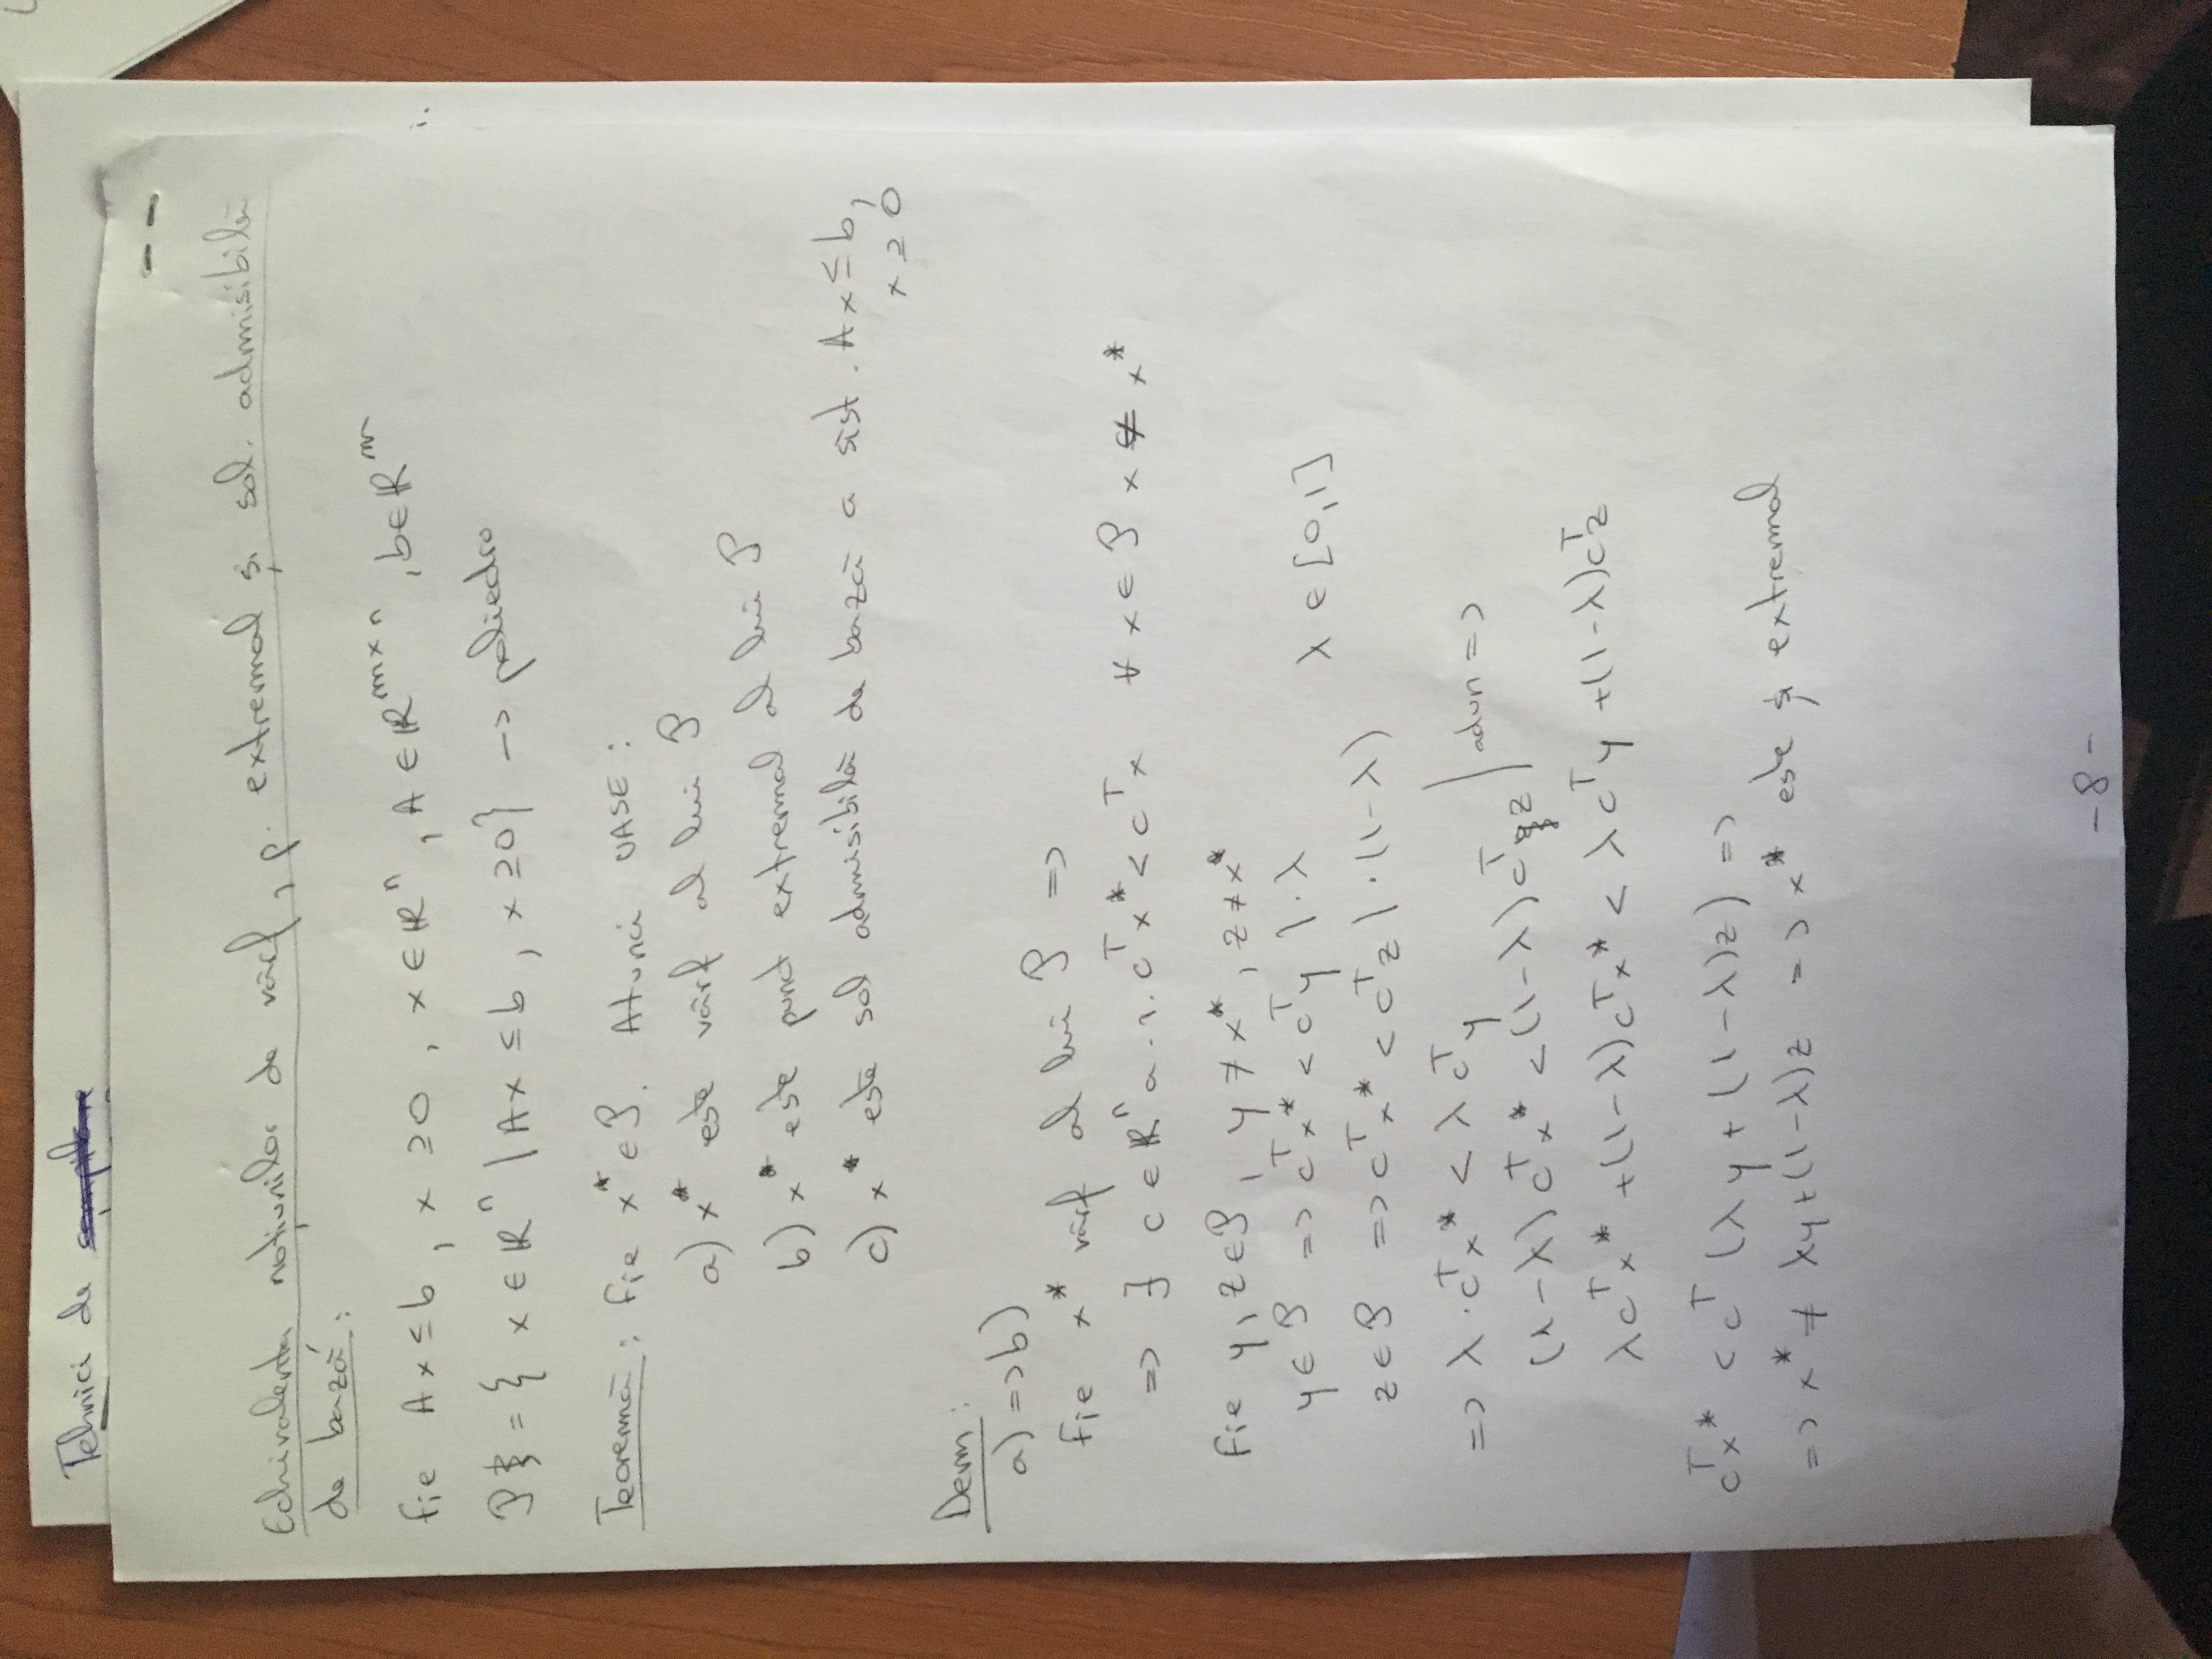 Tehnici de
Echivalenta noțiunilor de vârf, p. extremal și sol. admisibilă
de bază:
Fie Ax ≤ b, x ≥ 0, x ∈ ℝⁿ, A ∈ ℝᵐˣⁿ, b ∈ ℝᵐ
P = { x ∈ ℝⁿ | Ax ≤ b, x ≥ 0} -> poliedro
Teoremă: Fie x* ∈ P. Atunci UASE:
a) x* este vârf al lui P
b) x* este punct extremal al lui P
c) x* este sol admisibilă de bază a sist. Ax ≤ b,
x ≥ 0
Dem:
a) => b)
Fie x* vârf al lui P =>
=> ∃ c ∈ ℝⁿ a.î. cᵀx* < cᵀx ∀ x ∈ P x ≠ x*
Fie y, z ∈ P, y ≠ x*, z ≠ x*
y ∈ P => cᵀx* < cᵀy | · λ λ ∈ [0,1]
z ∈ P => cᵀx* < cᵀz | · (1-λ)
=> λ · cᵀx* < λcᵀy
(1-λ)cᵀx* < (1-λ)cᵀz | adun =>
λcᵀx* + (1-λ)cᵀx* < λcᵀy + (1-λ)cᵀz
cᵀx* < cᵀ(λy + (1-λ)z) =>
=> x* ≠ λy + (1-λ)z => x* este și extremal
- 8 -